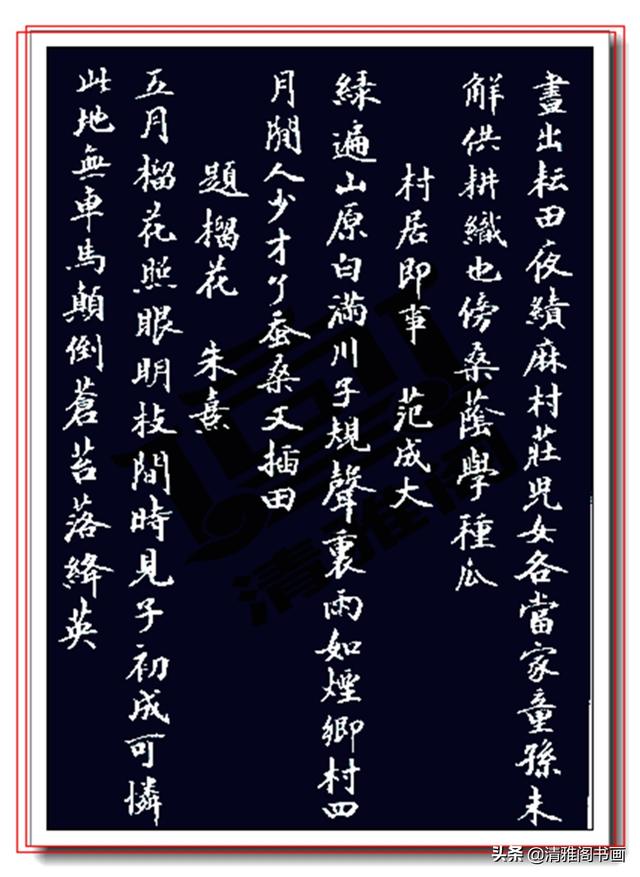 晝出耘田夜績麻村莊児女各當家童孫未
解供耕織也傍桑蔭學種瓜
村居即事 范成大
緑遍山原白滿川子規聲裏雨如煙鄉村四
月閒人少才了蚕桑又插田
題榴花 朱熹
五月榴花照眼明枝間時見子初成可憐
此地無車馬顛倒蒼苔落絳英
清雅阁
头条@清雅阁书画